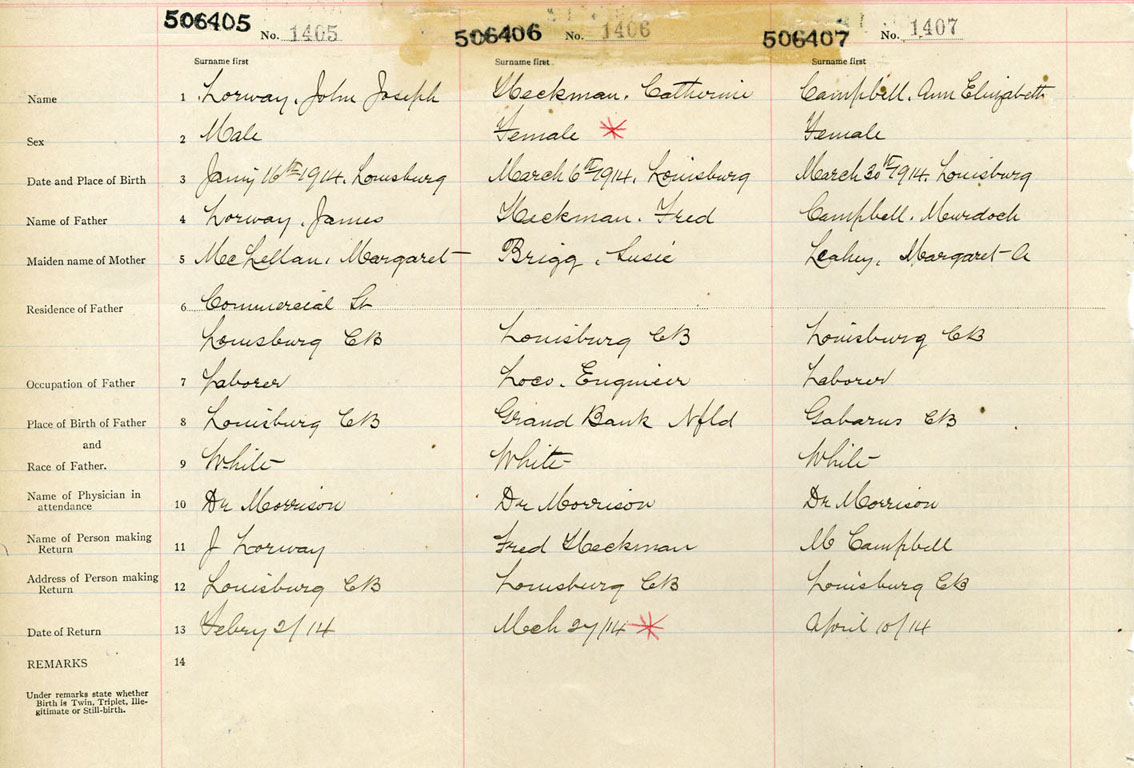 506405 No. 1405 506406 No. 1406 506407 No. 1407
Surname first Surname first Surname first
Name 1 Lorway, John Joseph Heckman, Catherine Campbell, Ann Elizabeth
Sex 2 Male Female Female
Date and Place of Birth 3 Jany 16th 1914, Louisburg March 6th 1914, Louisburg March 30th 1914, Louisburg
Name of Father 4 Lorway, James Heckman, Fred Campbell, Murdoch
Maiden name of Mother 5 McLellan, Margaret Brigg, Susie Leahey, Margaret A
Residence of Father 6 Commercial St
Louisburg CB Louisburg CB Louisburg CB
Occupation of Father 7 Laborer Loco. Engineer Laborer
Place of Birth of Father 8 Louisburg CB Grand Bank Nfld Gabarus CB
and
Race of Father. 9 White White White
Name of Physician in
attendance 10 Dr Morrison Dr Morrison Dr Morrison
Name of Person making
Return 11 J Lorway Fred Heckman M Campbell
Address of Person making
Return 12 Louisburg CB Louisburg CB Louisburg CB
Date of Return 13 Febry 2/14 Mch 27/14 April 10/14
REMARKS 14
Under remarks state whether
Birth is Twin, Triplet, Ille-
gitimate or Still-birth.